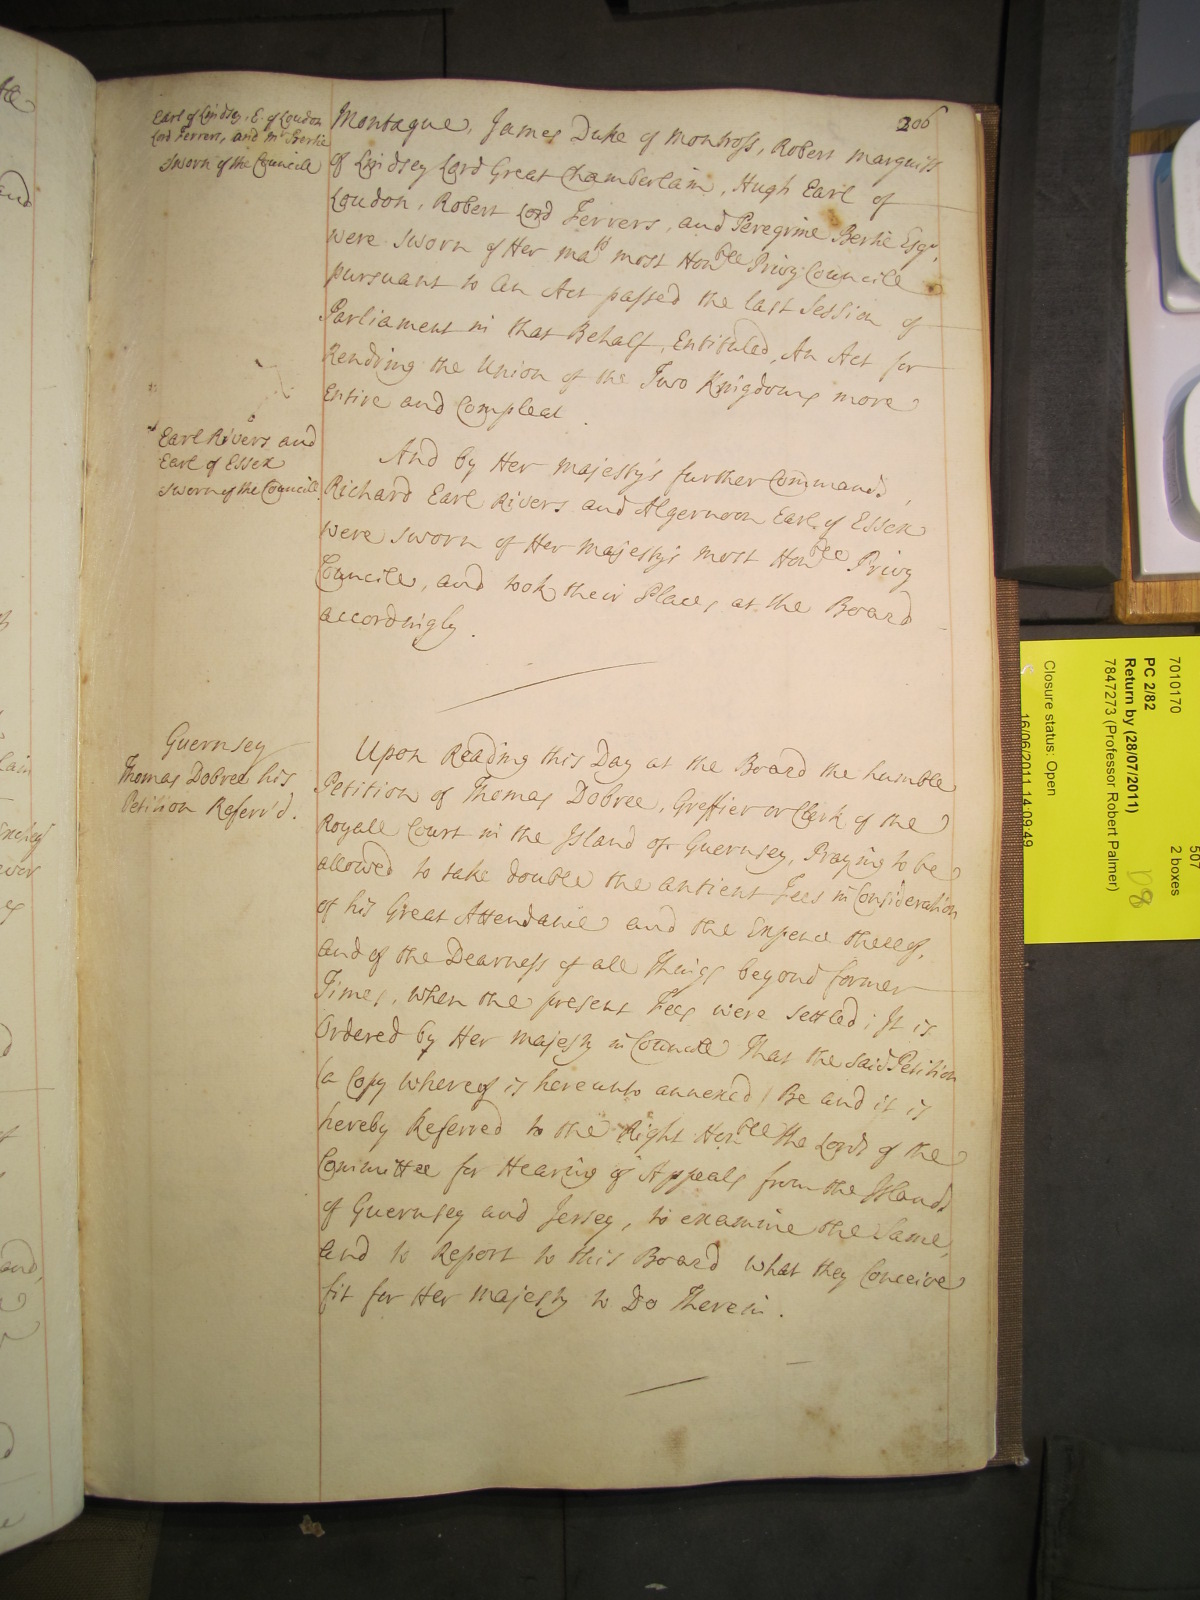 206
Earl of Lindsey, E. of Loudon
Lord Ferrers, and Mr. Bertie
sworn of the Councill
Montague, James Duke of Montross, Robert Marquiss
of Lindsey Lord Great Chamberlain, Hugh Earl of
Loudon, Robert Lord Ferrers, and Peregrine Bertie Esqr.
were sworn of Her Mats most Honble Privy Councill
pursuant to an Act passed the last Session of
Parliament in that Behalf, Entituled, An Act for
Rendring the Union of the Two Kingdoms more
Entire and Compleat.
Earl Rivers and
Earl of Essex
sworn of the Councill
And by Her Majesty's further Command,
Richard Earl Rivers and Algernoon Earl of Essex
were sworn of Her Majesty's most Honble Privy
Councill, and took their Places at the Board
accordingly.
Guernsey
Thomas Dobree his
Petition Referr'd.
Upon Reading this Day at the Board the humble
Petition of Thomas Dobree, Greffier or Clerk of the
Royall Court in the Island of Guernsey, Praying to be
allowed to take double the antient Fees in Consideration
of his Great Attendance and the Expence thereof,
and of the Dearness of all Things beyond former
Times, when the present Fees were settled; It is
Ordered by Her Majesty in Councill That the said Petition
(a Copy whereof is hereunto annexed) Be and it is
hereby Referred to the Right Honble the Lords of the
Committee for Hearing of Appeals from the Islands
of Guernsey and Jersey, to examine the Same,
and to Report to this Board what they Conceive
fit for Her Majesty to Do Therein.
507
2 boxes
7010170
PC 2/82
D8
Return by (28/07/2011)
7847273 (Professor Robert Palmer)
Closure status: Open
16/06/2011 14:09:49